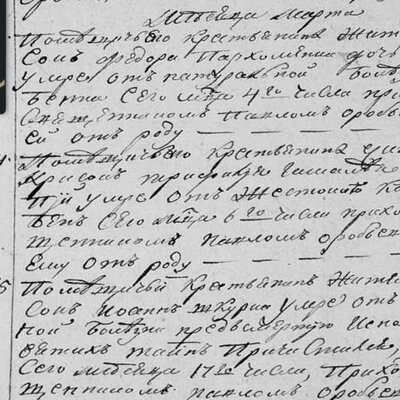 Месяца Марта
Помещичьего крестьянина жит
сонъ федора Пархоменка дочь
умре отъ натуральной боле
бенна сего мца 4го числа при
Священникомъ Павломъ оробье
ей отъ роду
4. Помещичьего крестьянина
умре отъ жестокой
бенъ сего мца 6го числа прихо
щенникомъ павломъ оробьев
ему отъ роду
5 Помещичий крестьянинъ жите
сонъ иоаннъ шкурка умре отъ
ной болезни предсмертную испо
святыхъ таинъ причастился,
сего месеца 17го числа, прихо
щенникомъ павломъ оробье